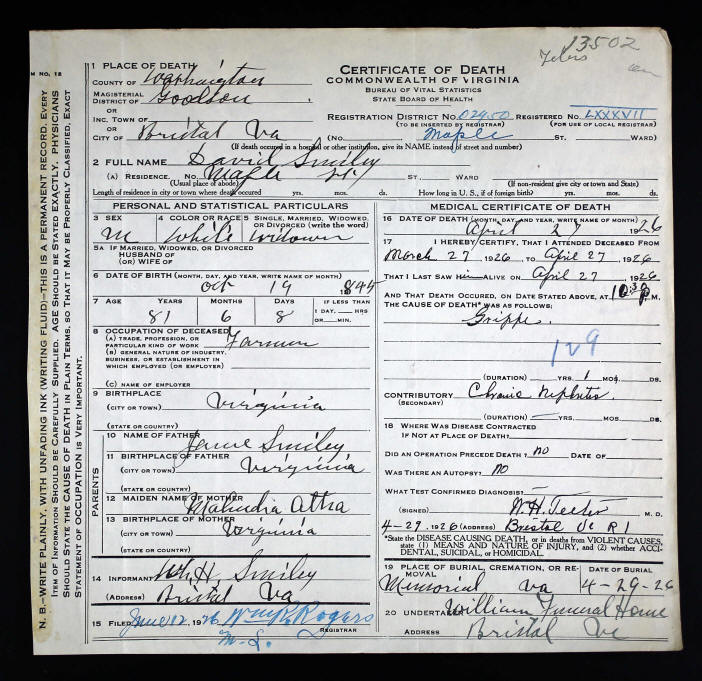 13502
M NO. 12
N. B.—WRITE PLAINLY, WITH UNFADING INK (WRITING FLUID)—THIS IS A PERMANENT RECORD. EVERY
ITEM OF INFORMATION SHOULD BE CAREFULLY SUPPLIED. AGE SHOULD BE STATED EXACTLY. PHYSICIANS
SHOULD STATE THE CAUSE OF DEATH IN PLAIN TERMS, SO THAT IT MAY BE PROPERLY CLASSIFIED. EXACT
STATEMENT OF OCCUPATION IS VERY IMPORTANT.
1 PLACE OF DEATH
COUNTY OF Washington
MAGISTERIAL
DISTRICT OF Goodson
OR
INC. TOWN OF
OR
CITY OF Bristol Va
CERTIFICATE OF DEATH
COMMONWEALTH OF VIRGINIA
BUREAU OF VITAL STATISTICS
STATE BOARD OF HEALTH
REGISTRATION DISTRICT NO. 02450 REGISTERED NO. LXXXVII
(TO BE INSERTED BY REGISTRAR) (FOR USE OF LOCAL REGISTRAR)
(NO. Maple ST. WARD)
(If death occurred in a hospital or other institution, give its NAME instead of street and number)
2 FULL NAME David Smiley
(A) RESIDENCE. NO. Maple St ST. WARD
(Usual place of abode) (If non-resident give city or town and State)
Length of residence in city or town where death occurred yrs. mos. ds. How long in U. S., if of foreign birth? yrs. mos. ds.
PERSONAL AND STATISTICAL PARTICULARS
3 SEX 4 COLOR OR RACE 5 SINGLE, MARRIED, WIDOWED, OR DIVORCED (write the word)
M White Widower
5A IF MARRIED, WIDOWED, OR DIVORCED
HUSBAND OF
(OR) WIFE OF
6 DATE OF BIRTH (MONTH, DAY, AND YEAR, WRITE NAME OF MONTH)
Oct 19 1844
7 AGE YEARS MONTHS DAYS IF LESS THAN
1 DAY, HRS
OR MIN.
81 6 8
8 OCCUPATION OF DECEASED
(A) TRADE, PROFESSION, OR
PARTICULAR KIND OF WORK Farmer
(B) GENERAL NATURE OF INDUSTRY,
BUSINESS, OR ESTABLISHMENT IN
WHICH EMPLOYED (OR EMPLOYER)
(C) NAME OF EMPLOYER
9 BIRTHPLACE
(CITY OR TOWN) Virginia
(STATE OR COUNTRY)
PARENTS
10 NAME OF FATHER
Smiley
11 BIRTHPLACE OF FATHER
(CITY OR TOWN) Virginia
(STATE OR COUNTRY)
12 MAIDEN NAME OF MOTHER
13 BIRTHPLACE OF MOTHER
(CITY OR TOWN) Virginia
(STATE OR COUNTRY)
14 INFORMANT W. H. Smiley
(ADDRESS) Bristol Va
15 FILED June 12 1926 Wm R. Rogers
REGISTRAR
MEDICAL CERTIFICATE OF DEATH
16 DATE OF DEATH (MONTH, DAY, AND YEAR, WRITE NAME OF MONTH)
April 27 1926
17 I HEREBY CERTIFY, THAT I ATTENDED DECEASED FROM
March 27 1926 TO April 27 1926
THAT I LAST SAW HIM ALIVE ON April 27 1926
AND THAT DEATH OCCURED, ON DATE STATED ABOVE, AT 10:30 P M.
THE CAUSE OF DEATH* WAS AS FOLLOWS:
Grippe.
129
(DURATION) YRS. 1 MOS. DS.
CONTRIBUTORY Chronic Nephritis
(SECONDARY)
(DURATION) YRS. MOS. DS.
18 WHERE WAS DISEASE CONTRACTED
IF NOT AT PLACE OF DEATH?
DID AN OPERATION PRECEDE DEATH? no DATE OF
WAS THERE AN AUTOPSY? no
WHAT TEST CONFIRMED DIAGNOSIS?
(SIGNED) W. H. Teeter M. D.
4-29, 1926 (ADDRESS) Bristol Va R 1
*State the DISEASE CAUSING DEATH, or in deaths from VIOLENT CAUSES,
state (1) MEANS AND NATURE OF INJURY, and (2) whether ACCI-
DENTAL, SUICIDAL, or HOMICIDAL.
19 PLACE OF BURIAL, CREMATION, OR RE-
MOVAL DATE OF BURIAL
Memorial Va 4-29-26
20 UNDERTAKER William Funeral Home
ADDRESS Bristol Va